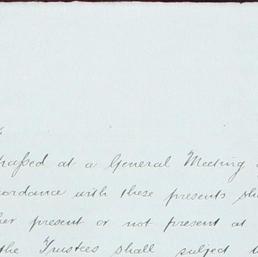 passed at a General Meeting
cordance with these presents
her present or not present at
the Trustees shall subject